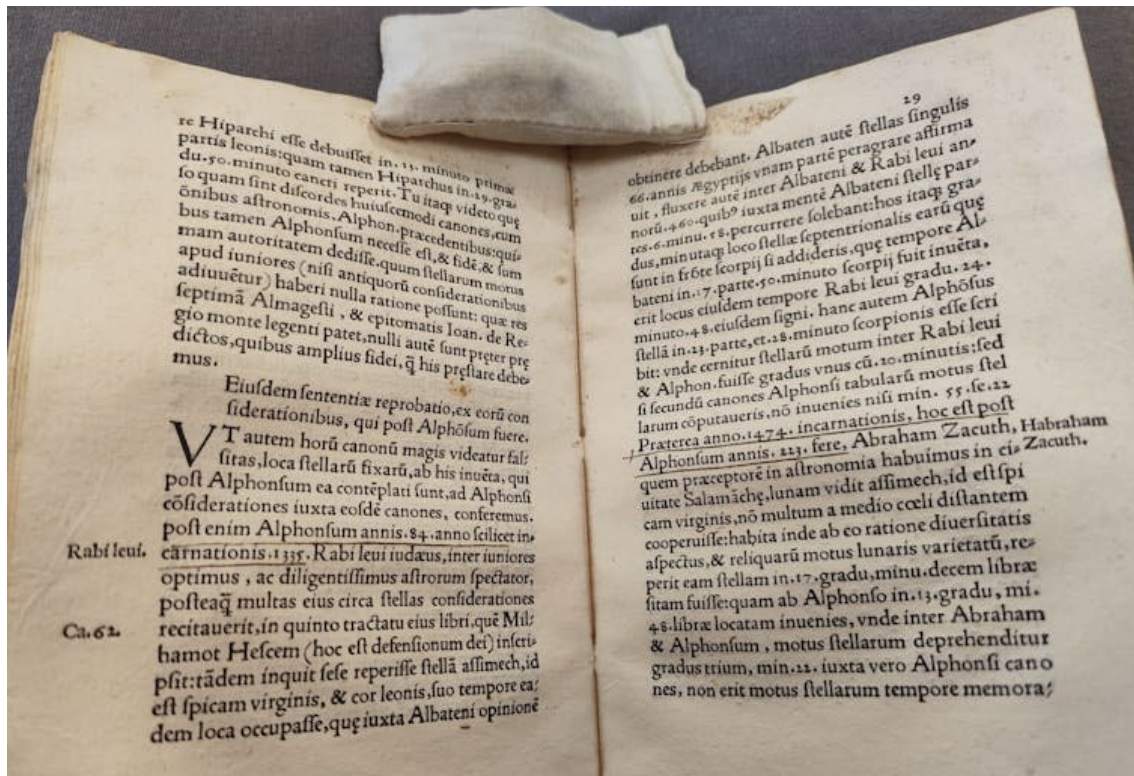 re Hiparchi eſſe debuiſſet in.13. minuto primæ
partis leonis:quam tamen Hiparchus in.29.gra-
du.50.minuto cancri reperit. Tu itaq; videto quę
ſo quam ſint diſcordes huiuſcemodi canones, cum
õnibus aſtronomis, Alphon.præcedentibus:qui-
bus tamen Alphonſum neceſſe eſt,& fidẽ,& ſum
mam autoritatem dediſſe.quum ſtellarum motus
apud iuniores (niſi antiquorũ conſiderationibus
adiuuẽtur) haberi nulla ratione poſſunt: quæ res
ſeptimã Almageſti, & epitomatis Ioan. de Re-
gio monte legenti patet,nulli autẽ ſunt pręter prę
dictos,quibus amplius fidei,q̃ his pręſtare debe-
mus.
Eiuſdem ſententiæ reprobatio,ex eorũ con
ſiderationibus, qui poſt Alphõſum fuere.
VT autem horũ canonũ magis videatur fal-
ſitas,loca ſtellarũ fixarũ,ab his inuẽta, qui
poſt Alphonſum ea contẽplati ſunt,ad Alphonſi
cõſiderationes iuxta eoſdẽ canones, conferemus.
poſt enim Alphonſum annis.84.anno ſcilicet in-
Rabi leui. carnationis.1335. Rabi leui iudæus,inter iuniores
optimus, ac diligentiſſimus aſtrorum ſpectator,
poſteaq̃ multas eius circa ſtellas conſiderationes
Ca.62. recitauerit,in quinto tractatu eius libri.quẽ Mil-
hamot Heſcem (hoc eſt defenſionum dei) inſcri-
pſit:tãdem inquit ſeſe reperiſſe ſtellã aſſimech,id
eſt ſpicam virginis, & cor leonis,ſuo tempore ea-
dem loca occupaſſe,quę iuxta Albateni opinionẽ
29
obtinere debebant. Albaten autẽ ſtellas ſingulis
66.annis Ægyptijs vnam partẽ peragrare affirma
uit, fluxere autẽ inter Albateni & Rabi leui an-
norũ.460.quibꝰ iuxta mentẽ Albateni ſtellę par-
tes.6.minu.58.percurrere ſolebant:hos itaq; gra-
dus,minutaq; loco ſtellæ ſeptentrionalis earũ quę
ſunt in frõte ſcorpij ſi addideris,quę tempore Al-
bateni in.17.parte.50.minuto ſcorpij fuit inuẽta,
erit locus eiuſdem tempore Rabi leui gradu. 24.
minuto.48.eiuſdem ſigni. hanc autem Alphõſus
ſtellã in.23.parte,et.28.minuto ſcorpionis eſſe ſcri
bit: vnde cernitur ſtellarũ motum inter Rabi leui
& Alphon.fuiſſe gradus vnus cũ.20.minutis:ſed
ſi ſecundũ canones Alphonſi tabularũ motus ſtel
larum cõputaueris.nõ inuenies niſi min. 55.ſe.22
Præterea anno.1474. incarnationis, hoc eſt poſt
Alphonſum annis. 223. fere, Abraham Zacuth, Habraham
quem præceptorẽ in aſtronomia habuimus in ci- Zacuth.
uitate Salamãchę,lunam vidit aſſimech,id eſt ſpi
cam virginis,nõ multum a medio cœli diſtantem
cooperuiſſe:habita inde ab eo ratione diuerſitatis
aſpectus,& reliquarũ motus lunaris varietatũ,re-
perit eam ſtellam in.17.gradu,minu.decem libræ
ſitam fuiſſe:quam ab Alphonſo in.13.gradu, mi.
48.libræ locatam inuenies, vnde inter Abraham
& Alphonſum, motus ſtellarum deprehenditur
gradus trium, min.22. iuxta vero Alphonſi cano
nes, non erit motus ſtellarum tempore memora-